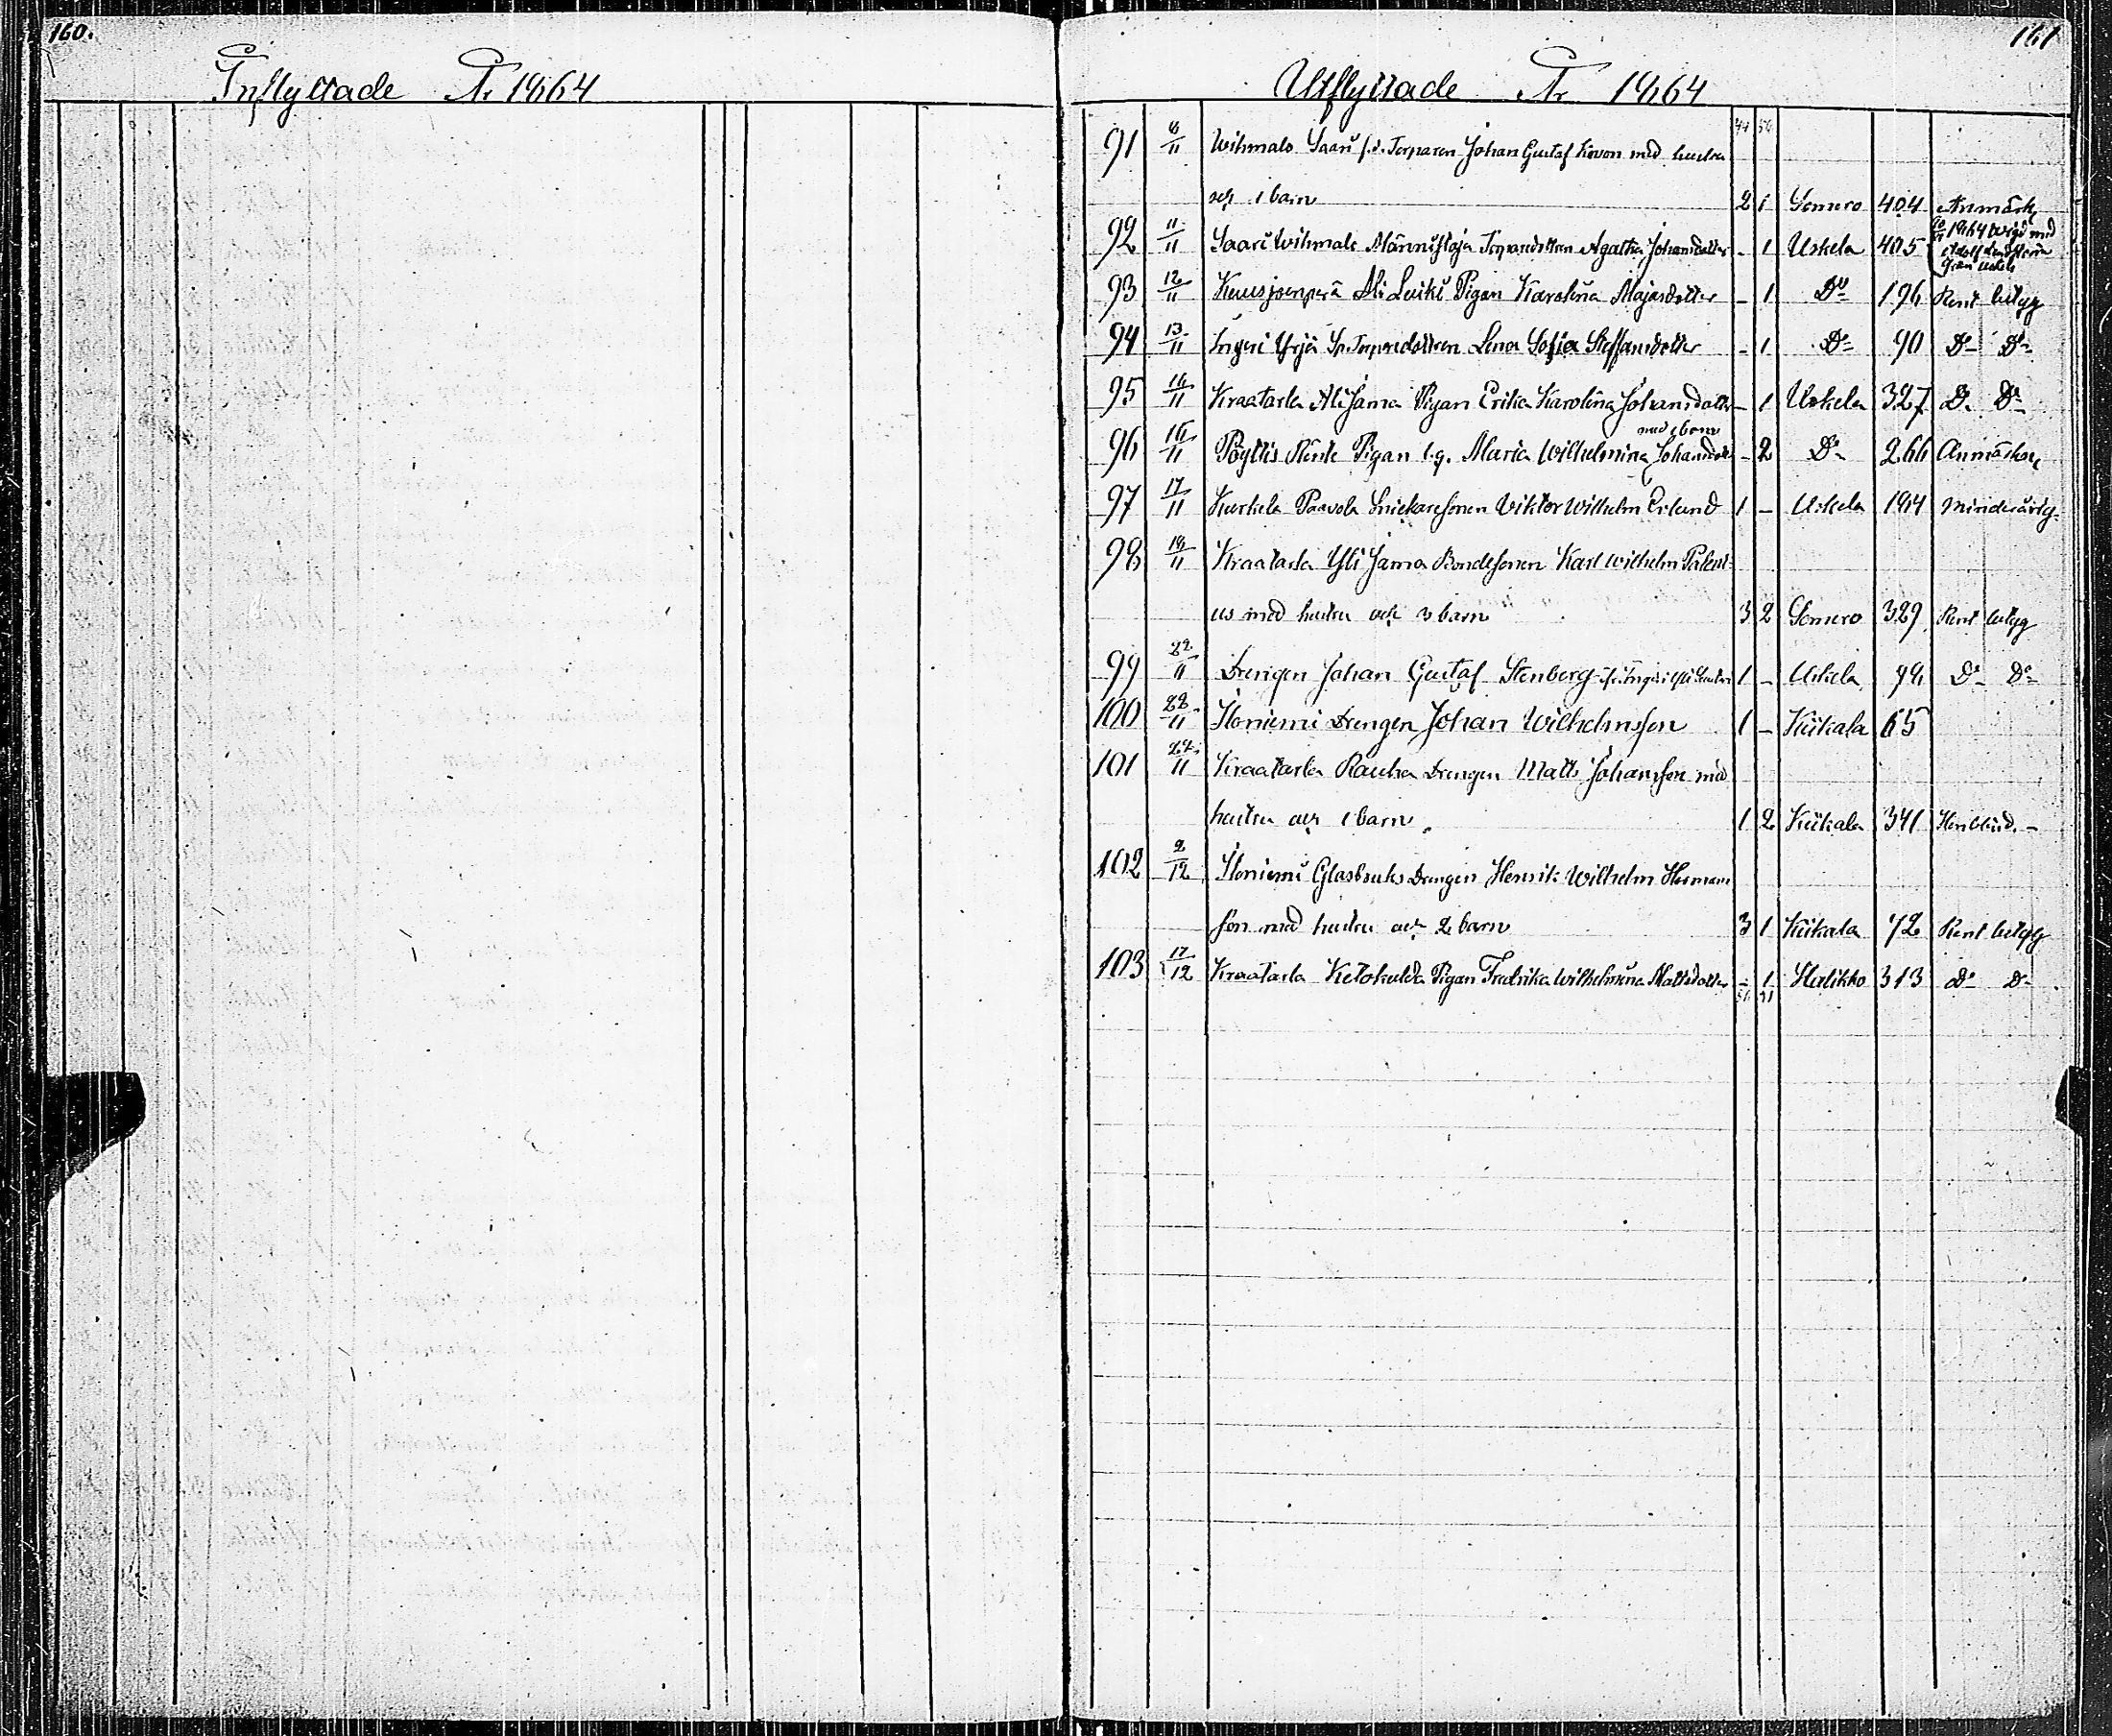 160.
Inflyttade År 1864
161
Utflyttade År 1864
91 8/11 Wihmalo Saari f.d. Torparen Johan Gustaf med hustru
och 1 barn 2 1 Somero 404 Anmärk
92 11/11 Saari Wihmalo Männistöja Torparedottren Agatha Johansdotter - 1 Uskela 405 1864 wigd med
från Uskela
93 12/11 Kuusjoenperä Ali Luiki Pigan Karolina Majasdotter - 1 Do 196 Rent betyg
94 13/11 Ingeri Yrjä Sp. Torparedottren Lena Sofia Steffansdotter - 1 Do 90 Do Do
95 16/11 Kraatarla Ali Jama Pigan Erika Karolina Johansdotter - 1 Uskela 327 Do Do
med 1 barn
96 16/11 Pöytiö Pigan l.q. Maria Wilhelmina Johansdotter - 2 Do 266 Anmärkn
97 17/11 Kurkela Paavola Snickaresonen Viktor Wilhelm Erlund 1 - Uskela 194 Minderårig
98 18/11 Kraatarla Yli Jama Bondesonen Karl Wilhelm Palent-
us med hustru och 3 barn 3 2 Somero 329 Rent betyg
99 22/11 Drengen Johan Gustaf Stenberg 1 - Uskela 98 Do Do
100 22/11 Iloniemi Drengen Johan Wilhelmsson 1 - Kiikala 65
101 24/11 Kraatarla Rauha Drengen Matts Johansson med
hustru och 1 barn 1 2 Kiikala 341
102 2/12 Iloniemi Glasbruks Drengen Henrik Wilhelm Herman
son med hustru och 2 barn 3 1 Kiikala 72 Rent betyg
103 17/12 Kraatarla Ketohulda Pigan Fredrika Wilhelmina Mattsdotter - 1 Halikko 313 Do Do